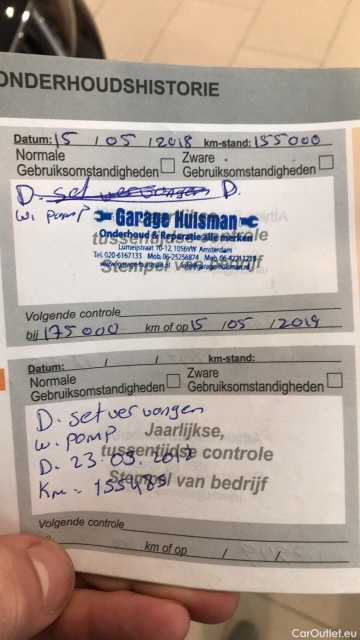 ONDERHOUDSHISTORIE
Datum: 15 / 05 / 2018 km-stand: 155000
Normale Zware
Gebruiksomstandigheden Gebruiksomstandigheden
D. set vervangen D.
w. pomp
Garage Huisman
Onderhoud & Reparatie alle merken
Lumeijstraat 10-12, 1056VW Amsterdam
Tel. 020-6167133 Mob. 06-25256874 Mob. 06-42213219
tussentijdse controle
Stempel van bedrijf
Volgende controle
bij 175000 km of op 15 / 05 / 2019
Datum: / / km-stand:
Normale Zware
Gebruiksomstandigheden Gebruiksomstandigheden
D. set vervangen
w. pomp Jaarlijkse,
tussentijdse controle
D. 23.05.2018
Stempel van bedrijf
Km = 155485
Volgende controle
km of op / /
CarOutlet.eu